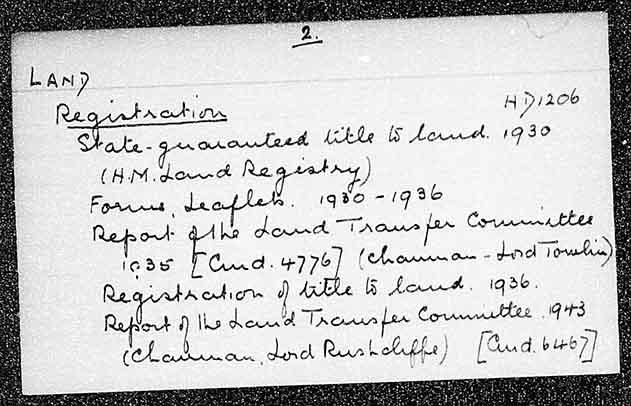 2.
LAND
Registration HD1206
State-guaranteed title to land. 1930
(H.M. Land Registry)
Forms, Leaflets. 1930-1936
Report of the Land Transfer Committee
1935 [Cmd. 4776] (Chairman - Lord Tomlin)
Registration of title to land. 1936.
Report of the Land Transfer Committee. 1943
(Chairman, Lord Rushcliffe) [Cmd. 6467]